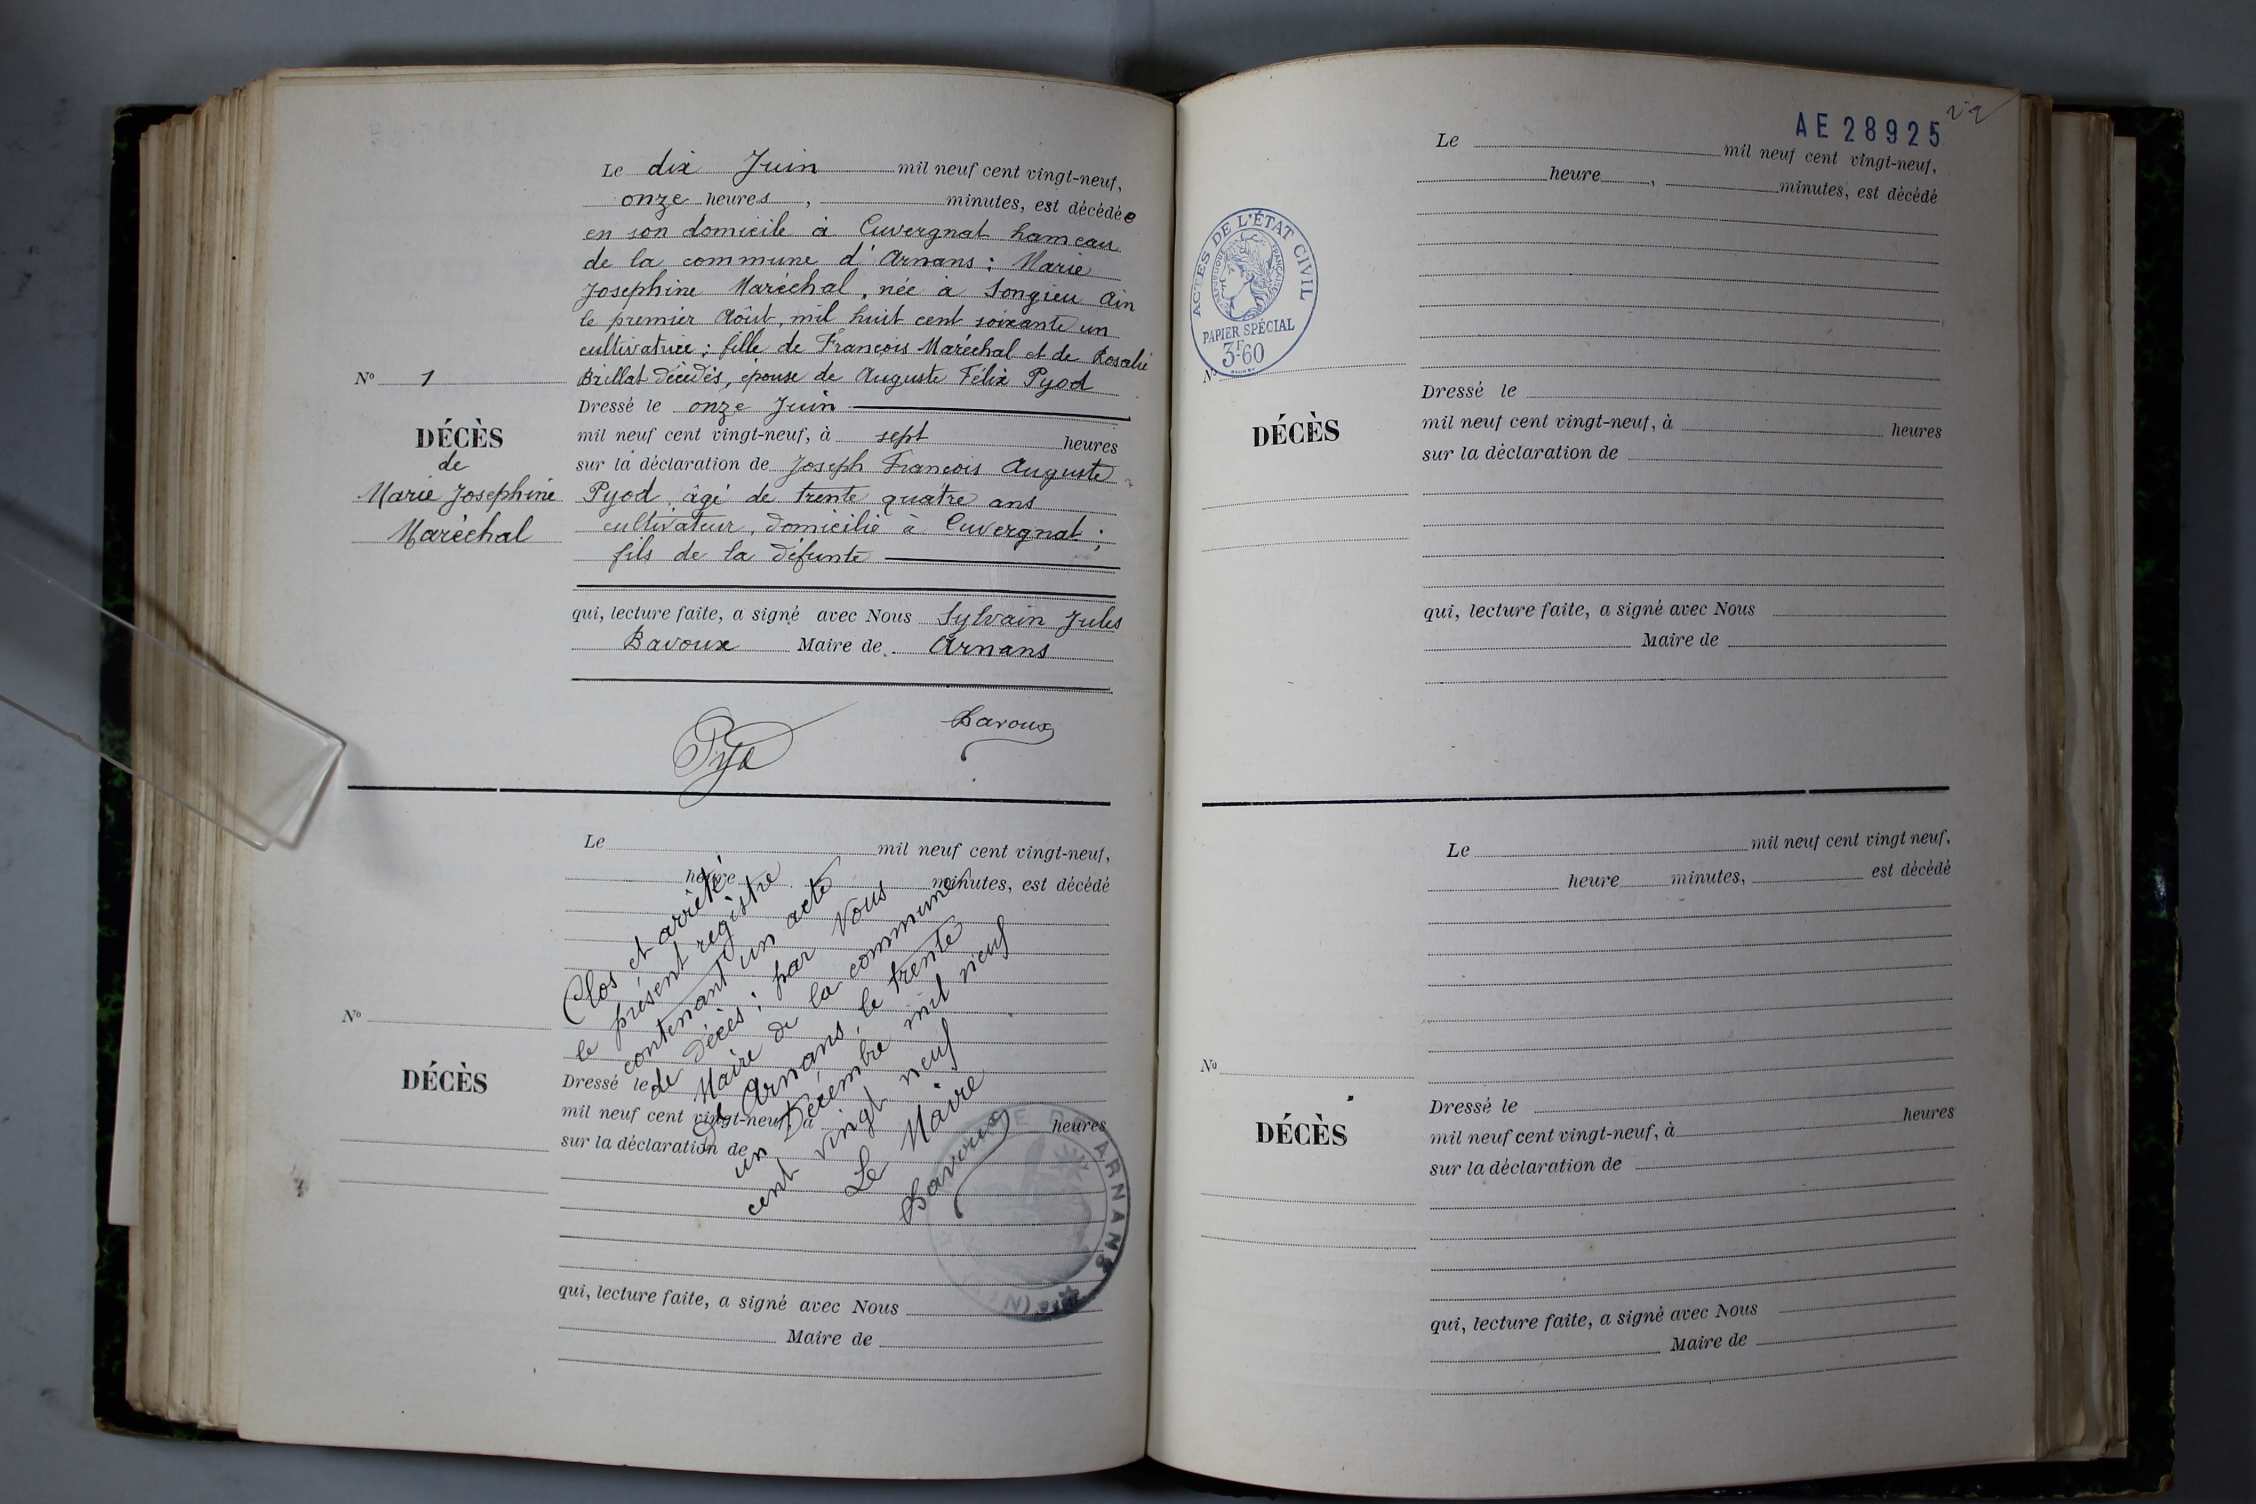 Le dix Juin mil neuf cent vingt-neuf,
onze heures, minutes, est décédée
en son domicile à Cuvergnat hameau
de la commune d'Arnans ; Marie
Josephine Maréchal, née à Songieu Ain
le premier Août, mil huit cent soixante un
cultivatrice ; fille de François Maréchal et de Rosalie
Brillat décédés, épouse de Auguste Félix Pyod
Nº 1
DÉCÈS
de
Marie Josephine
Maréchal
Dressé le onze Juin
mil neuf cent vingt-neuf, à sept heures
sur la déclaration de Joseph François Auguste
Pyod, âgé de trente quatre ans
cultivateur, domicilié à Cuvergnat ;
fils de la défunte
qui, lecture faite, a signé avec Nous Sylvain Jules
Bavoux Maire de Arnans
Pyod
Bavoux
Le mil neuf cent vingt-neuf,
heure minutes, est décédé
Nº
DÉCÈS
Dressé le
mil neuf cent vingt-neuf, à heures
sur la déclaration de
qui, lecture faite, a signé avec Nous
Maire de
Clos et arrêté
le présent registre
contenant un acte
de décès ; par Nous
Maire de la commune
d'Arnans, le trente
un Décembre mil neuf
cent vingt neuf
Le Maire
Bavoux
ARNANS
AE 28925
22
Le mil neuf cent vingt-neuf,
heure, minutes, est décédé
ACTES DE L'ÉTAT CIVIL
RÉPUBLIQUE FRANÇAISE
PAPIER SPÉCIAL
3F60
Nº
DÉCÈS
Dressé le
mil neuf cent vingt-neuf, à heures
sur la déclaration de
qui, lecture faite, a signé avec Nous
Maire de
Le mil neuf cent vingt neuf,
heure minutes, est décédé
Nº
DÉCÈS
Dressé le
mil neuf cent vingt-neuf, à heures
sur la déclaration de
qui, lecture faite, a signé avec Nous
Maire de